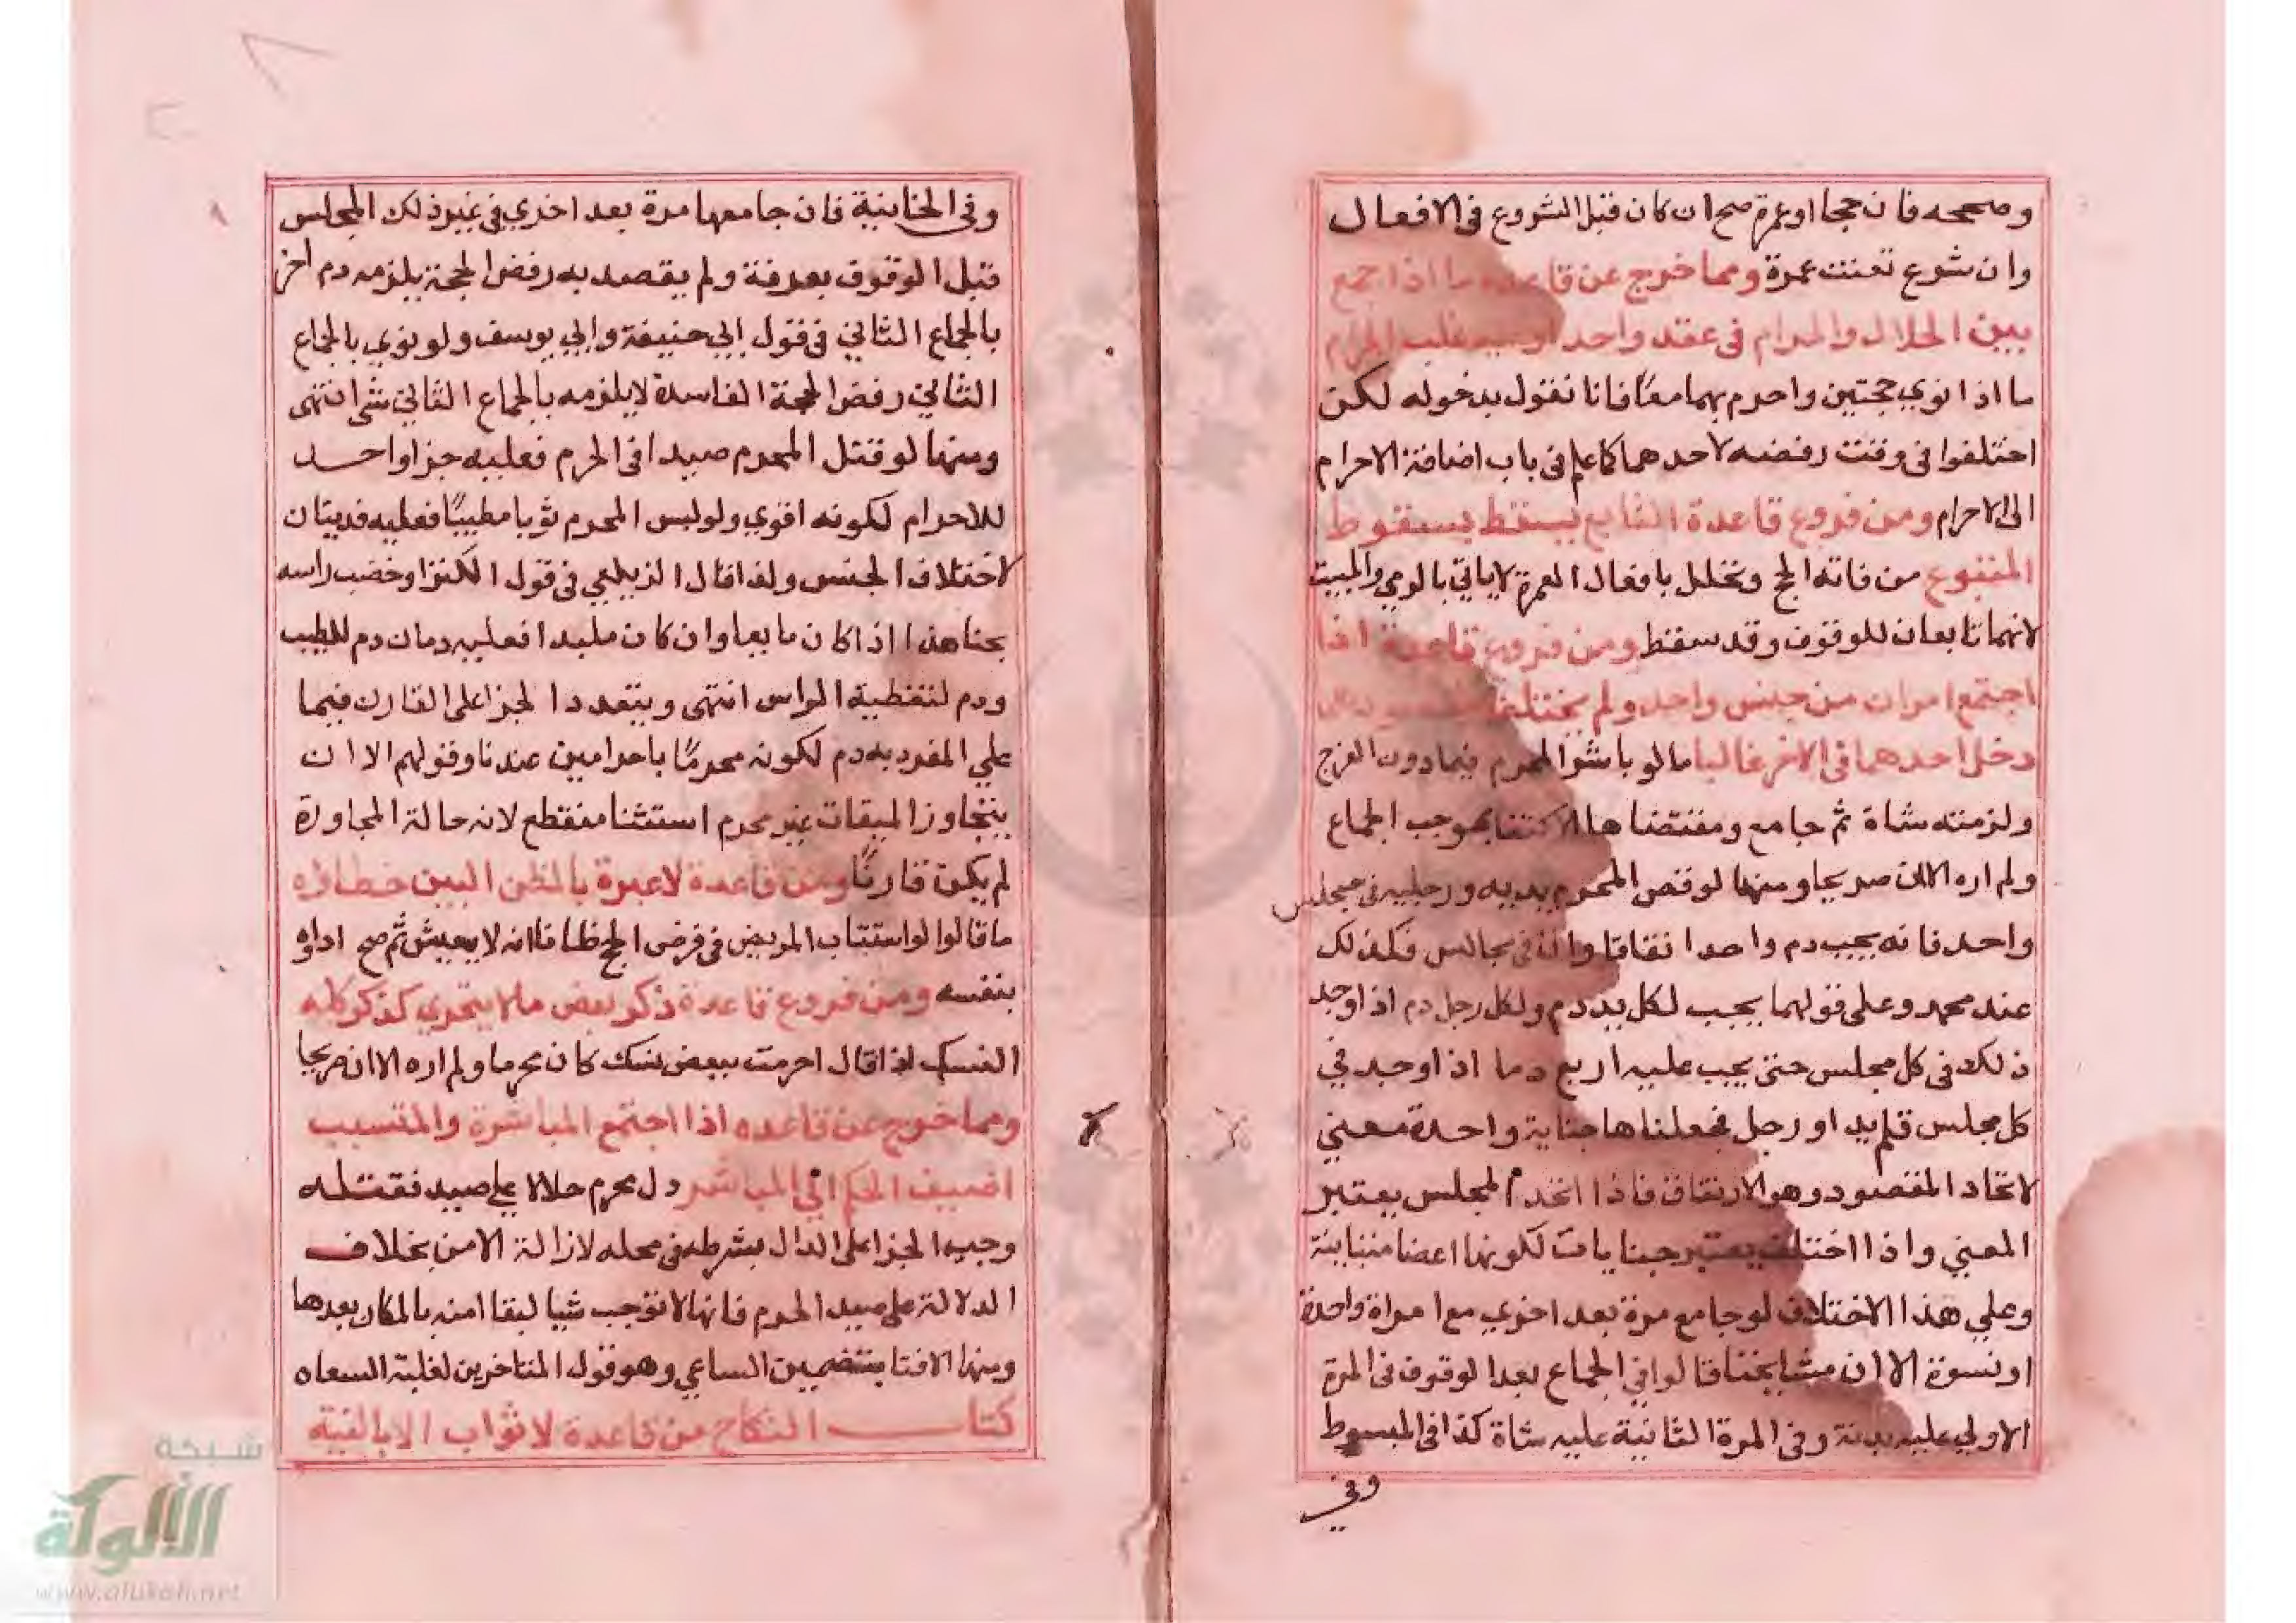 وصححه فان حجا او عمرة صح ان كان قبل الشروع فى الافعال
وان شرع تعينت عمرة ومما خرج عن قاعدة ما اذا جمع
بين الحلال والحرام فى عقد واحد او نية غلب الحرام
ما اذا نوي حجتين واحرم بهما معًا فانا نقول بدخوله لكن
اختلفوا فى وقت رفضه لاحدهما كما علم فى باب اضافة الاحرام
الى الاحرام ومن فروع قاعدة التابع يسقط بسقوط
المتبوع من فاته الحج وتحلل بافعال العمرة لا ياتي بالرمي والمبيت
لانهما تابعان للوقوف وقد سقط ومن فروع قاعدة اذا
اجتمع امران من جنس واحد ولم يختلف
دخل احدهما فى الاخر غالبا ما لو باشر المحرم فيما دون الفرج
ولزمته شاة ثم جامع ومقتضاها الاكتفا بموجب الجماع
ولم اره الان صريحا ومنها لو قص المحرم يديه ورجليه فى مجلس
واحد فانه يجب دم واحد اتفاقا وان فى مجالس فكذلك
عند محمد وعلى قولهما يجب لكل يد دم ولكل رجل دم اذا وجد
ذلك فى كل مجلس حتى يجب عليه اربع دما اذا وجد في
كل مجلس قلم يد او رجل فجعلناها جناية واحدة معني
لاتحاد المقصود وهو الارتفاق فاذا اتحدم لمجلس يعتبر
المعني واذا اختلف يعتبر جنايات لكونها اعضا متباينة
وعلي هذا الاختلاف لو جامع مرة بعد اخري مع امراة واحدة
او نسوة الا ان مشايخنا قالوا في الجماع بعد الوقوف فى المرة
الاولي عليه بدنة وفى المرة الثانية عليه شاة كذا فى المبسوط
وفي
وفى الخانية فان جامعها مرة بعد اخري في غير ذلك المجلس
قبل الوقوف بعرفة ولم يقصد به رفض الحجة يلزمه دم اخر
بالجماع الثاني فى قول ابي حنيفة وابي يوسف ولو نوي بالجماع
الثاني رفض الحجة الفاسدة لا يلزمه بالجماع الثاني شي انتهى
ومنها لو قتل المحرم صيدا فى الحرم فعليه جزا واحد
للاحرام لكونه اقوي ولو لبس المحرم ثوبا مطيبًا فعليه فديتان
لاختلاف الجنس ولذا قال الزيلعي فى قول الكنز او خضب راسه
بحنا هذا اذا كان مايعا وان كان ملبدا فعليه دمان دم للطيب
ودم لتغطية الراس انتهى ويتعدد الجزا على القارن فيما
علي المفرد به دم لكونه محرمًا باحرامين عندنا وقولهم الا ان
يتجاوز الميقات غير محرم استثنا منقطع لانه حالة المجاوزة
لم يكن قارنًا ومن قاعدة لا عبرة بالظن البين خطاؤه
ما قالوا لو استناب المريض فى فرض الحج ظانا انه لا يعيش ثم صح اداه
بنفسه ومن فروع قاعدة ذكر بعض ما لا يتجزي كذكر كله
النسك اذا قال احرمت ببعض نسك كان محرما ولم اره الان صريحا
ومما خرج عن قاعده اذا اجتمع المباشرة والمتسبب
اضيف الحكم الي المباشر دل محرم حلالا على صيد فقتله
وجب الجزا على الدال بشرطه فى محله لازالة الامن بخلاف
الدلالة على صيد الحرم فانها لا توجب شيا لبقا امنه بالمكان بعدها
ومنها الافتا بتضمين الساعي وهو قول المتاخرين لغلبة السعاه
كتاب النكاح من قاعدة لا ثواب الا بالنية
شبكة
الألوكة
www.alukah.net